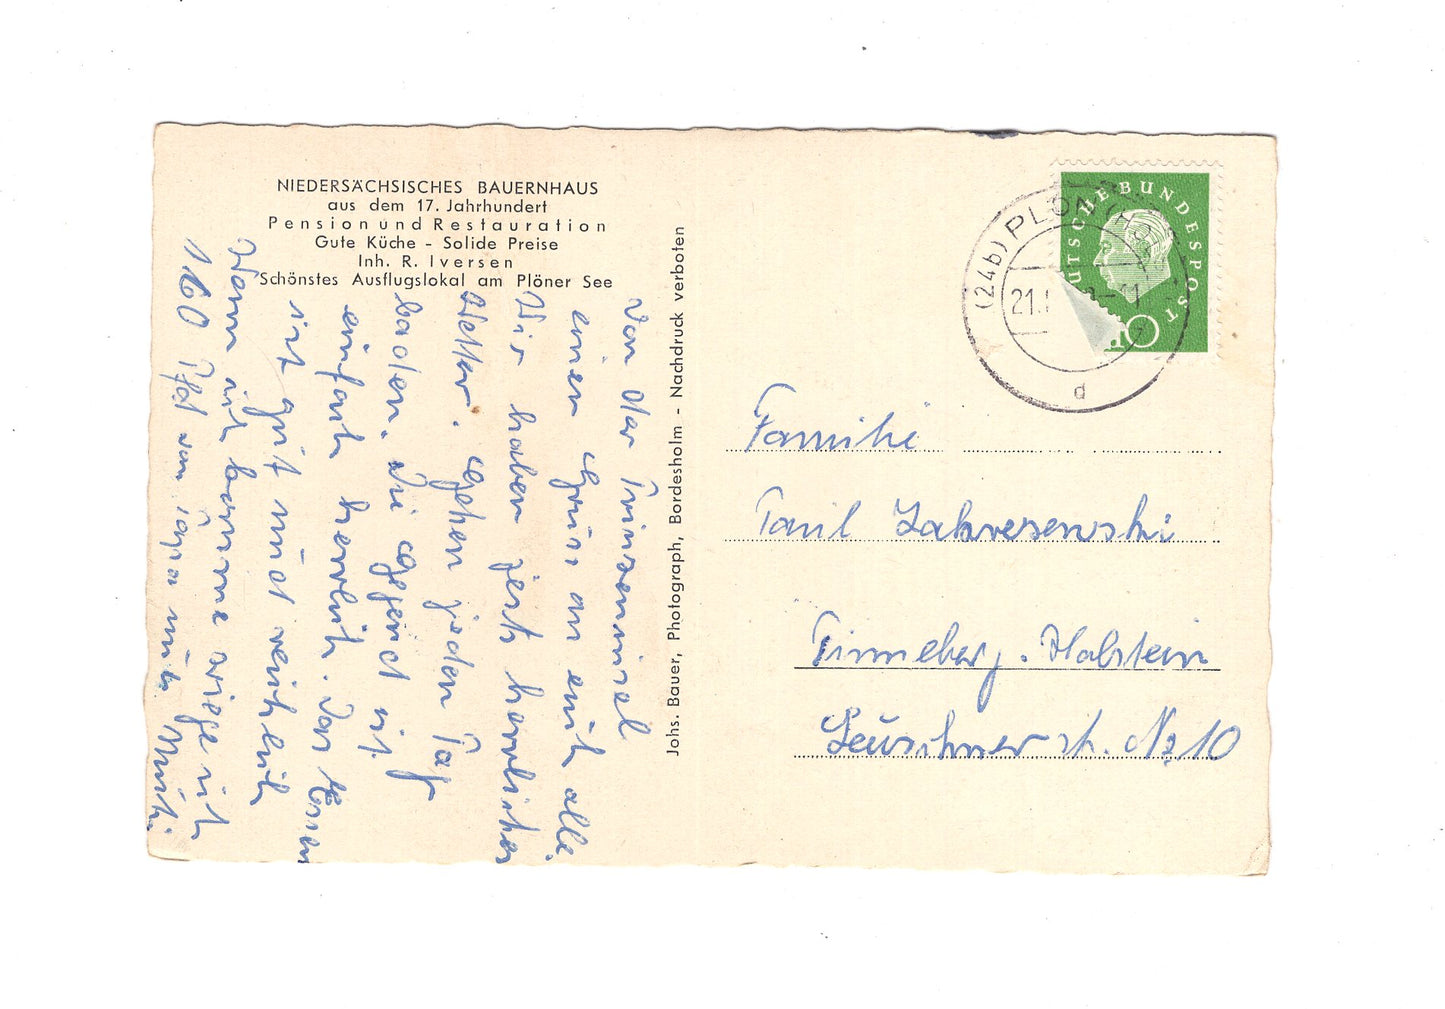 NIEDERSÄCHSISCHES BAUERNHAUS
aus dem 17. Jahrhundert
Pension und Restauration
Gute Küche - Solide Preise
Inh. R. Iversen
Schönstes Ausflugslokal am Plöner See
Von der Prinseninsel
einen Gruss an euch alle.
Wir haben jest herrliches
Wetter. Gehen jeden Tag
baden. Die Gegend ist
einfach herrlich. Das Essen
ist gut und reichlich
Wenn ich komme wiege ich
160 Pfd vom Papa und Mutti
Johs. Bauer, Photograph, Bordesholm - Nachdruck verboten
(24b) PLÖN
21.
d
DEUTSCHE BUNDESPOST
10
Familie
Paul
Pinneberg. Holstein
Leuschner str. Nr 10